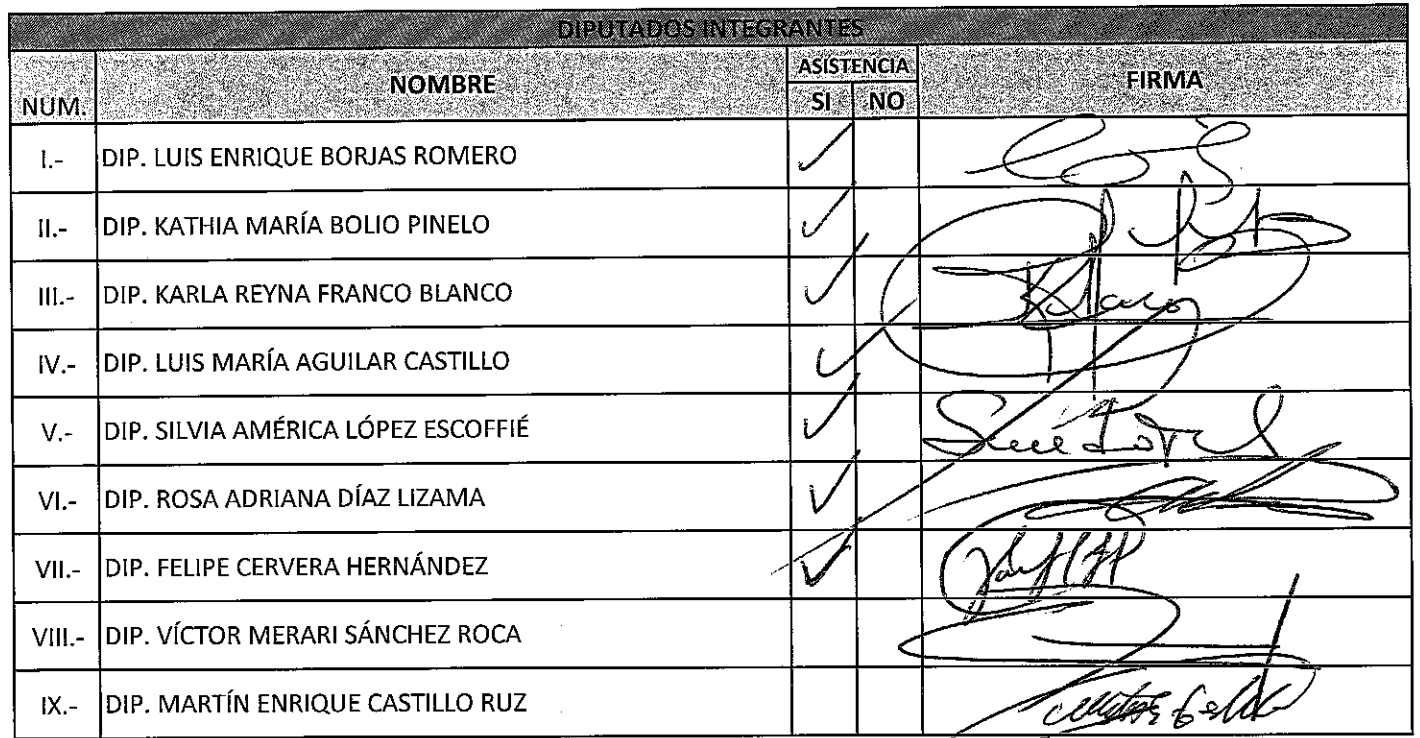 DIPUTADOS INTEGRANTES
NUM. NOMBRE ASISTENCIA FIRMA
SI NO
I.- DIP. LUIS ENRIQUE BORJAS ROMERO
II.- DIP. KATHIA MARÍA BOLIO PINELO
III.- DIP. KARLA REYNA FRANCO BLANCO
IV.- DIP. LUIS MARÍA AGUILAR CASTILLO
V.- DIP. SILVIA AMÉRICA LÓPEZ ESCOFFIÉ
VI.- DIP. ROSA ADRIANA DÍAZ LIZAMA
VII.- DIP. FELIPE CERVERA HERNÁNDEZ
VIII.- DIP. VÍCTOR MERARI SÁNCHEZ ROCA
IX.- DIP. MARTÍN ENRIQUE CASTILLO RUZ